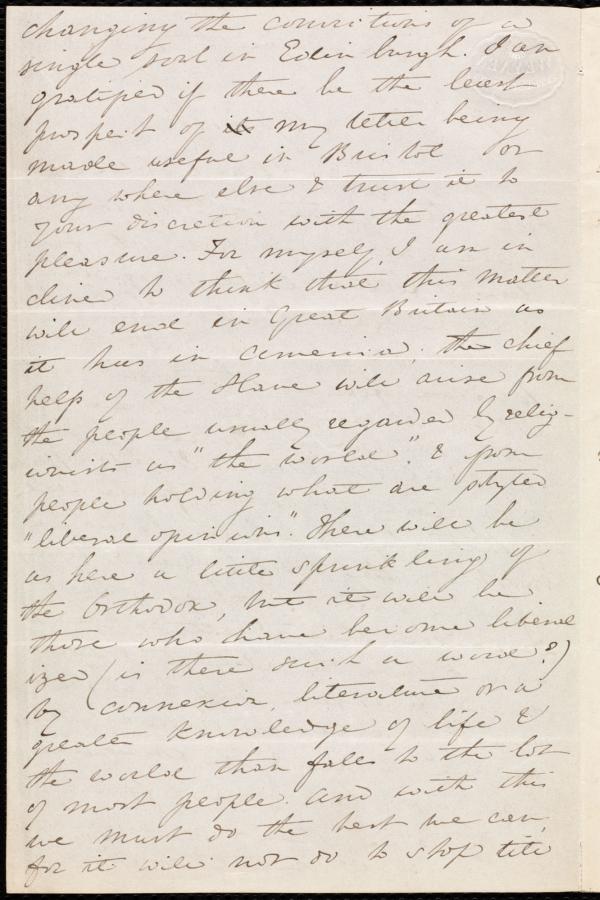 changing the convictions of a
single soul in Edinburgh. I am
gratified if there be the least
prospect of its my letter being
made useful in Bristol or
any where else & trust it to
your discretion with the greatest
pleasure. For myself, I am in
clined to think that this matter
will end in Great Britain as
it has in America; the chief
help of the Slave will arise from
the people usually regarded by relig-
ionists as "the world". & from
people holding what are styled
"liberal opinions". There will be
as here a little sprinkling of
the Orthodox, but it will be
those who have become liberal
ized (is there such a word?)
by connexion, literature or a
greater knowledge of life &
the world than falls to the lot
of most people. And with this
we must do the best we can,
for it will not do to stop till